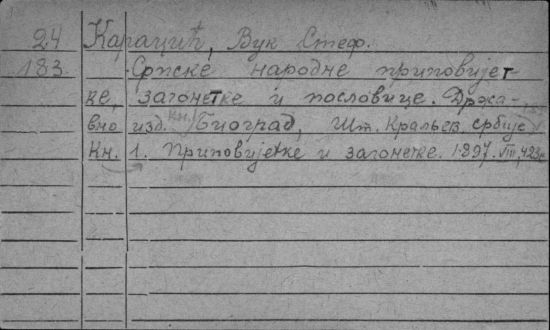 24 Караџић, Вук Стеф.
183 Српске народне приповијет-
ке, загонетке и пословице. Држа-
вно изд. Кн. Биоград, Шт. Краљев. Србије
Кн. 1. Приповијетке и загонетке. 1897. VIII, 423